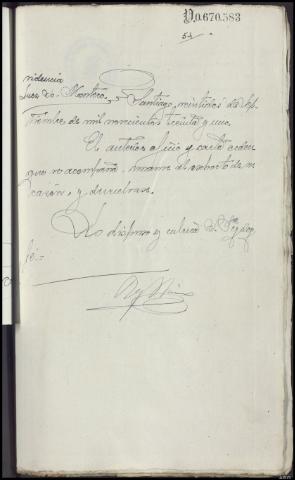 D.0.670.583
54
videncia
Juez Sr. Montero.
Santiago, veintidos de Sep
tiembre de mil novecientos treinta y uno.
El anterior oficio y carta orden
que se acompaña, únanse al exhorto de su
razón, y devuelvase.
Lo dispuso y rubrica S. Sª doy
fé.=